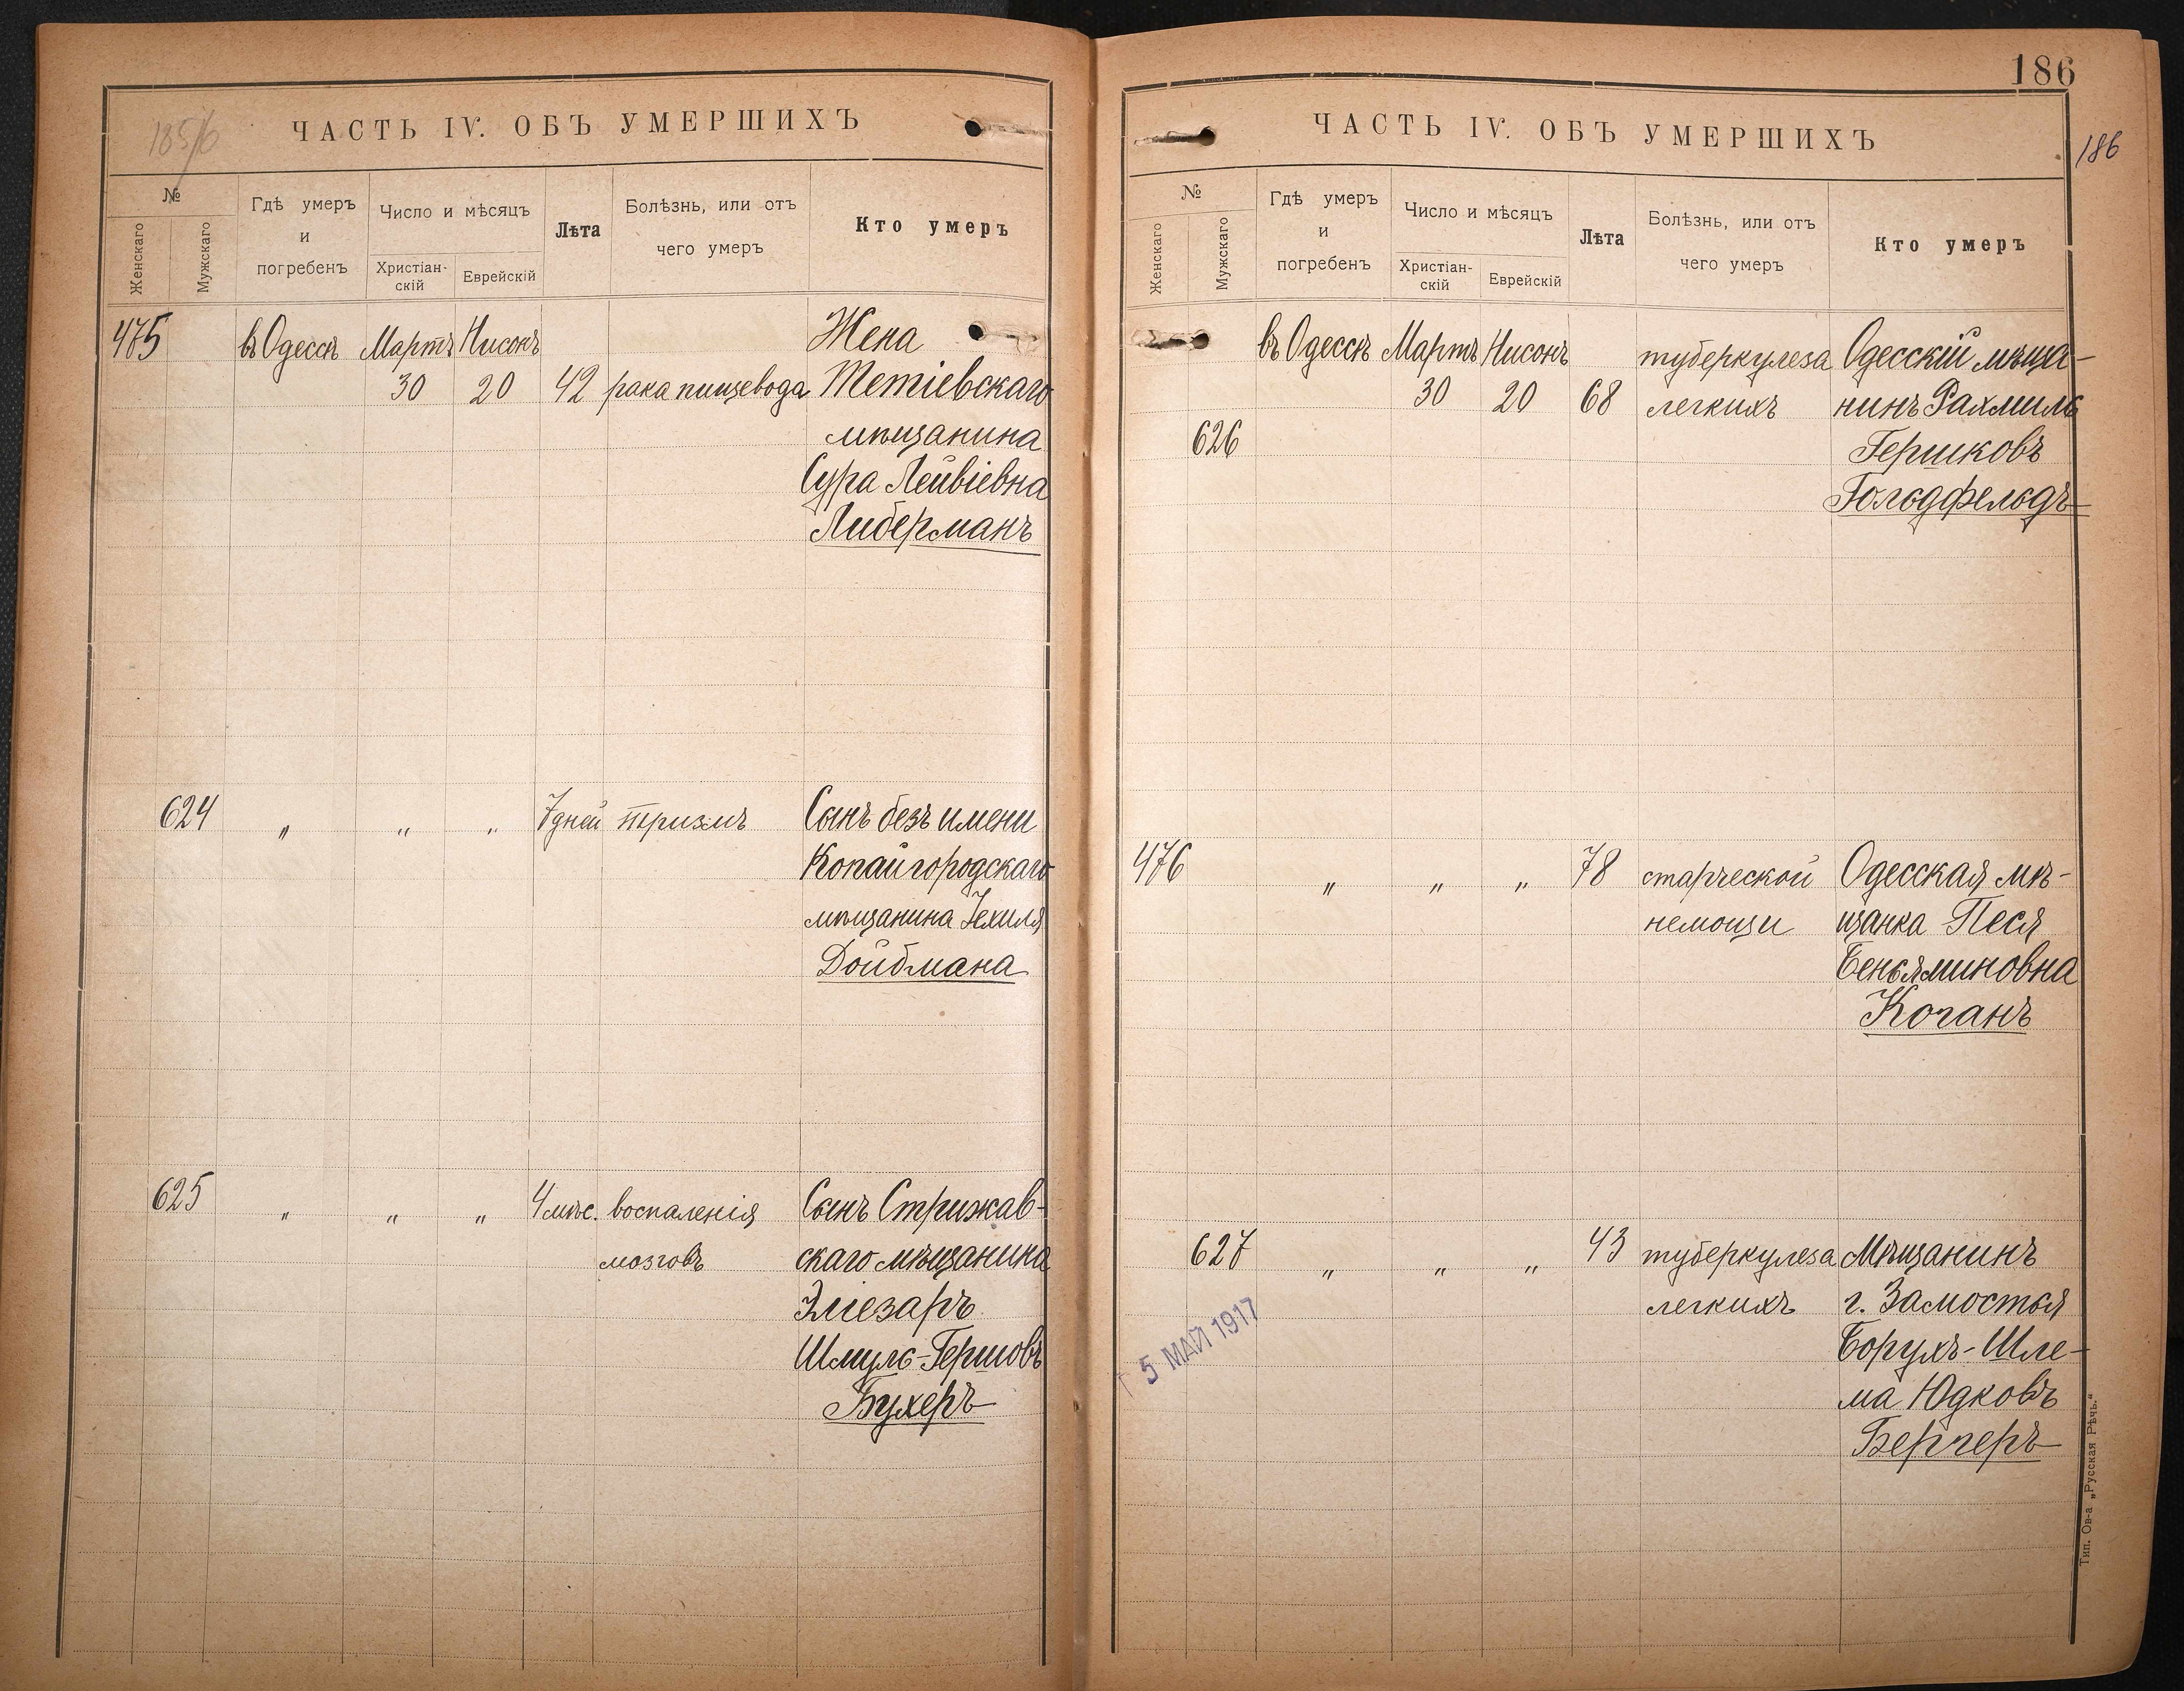 185/6
ЧАСТЬ IV. ОБЪ УМЕРШИХЪ
№
Женскаго
Мужскаго
Гдѣ умеръ
и
погребенъ
Число и мѣсяцъ
Христіан-
скій
Еврейскій
Лѣта
Болѣзнь, или отъ
чего умеръ
Кто умеръ
475 въ Одессѣ Мартъ Нисонъ Жена
30 20 42 рака пищевода Тетіевскаго
мѣщанина
Сура Лейвіевна
Либерманъ
624 " " " 7 дней тризмъ Сынъ безъ имени
Копайгородскаго
мѣщанина Іехиля
Дойбмана
625 " " " 4 мѣс. воспаленія Сынъ Стрижав-
мозговъ скаго мѣщанина
Эліезаръ
Шмуль-Гершовъ
Бухеръ
186
186
ЧАСТЬ IV. ОБЪ УМЕРШИХЪ
№
Женскаго
Мужскаго
Гдѣ умеръ
и
погребенъ
Число и мѣсяцъ
Христіан-
скій
Еврейскій
Лѣта
Болѣзнь, или отъ
чего умеръ
Кто умеръ
въ Одессѣ Мартъ Нисонъ туберкулеза Одесскій мѣща-
30 20 68 легкихъ нинъ Рахмиль
626 Гершковъ
Гольдфельдъ
476 " " " 78 старческой Одесская мѣ-
немощи щанка Песя
Беньяминовна
Коганъ
627 " " " 43 туберкулеза Мѣщанинъ
легкихъ г. Замостья
Борухъ-Шле-
ма Юдковъ
Бергеръ
5 МАЙ 1917
Тип. Ов-а „Русская Рѣчь."